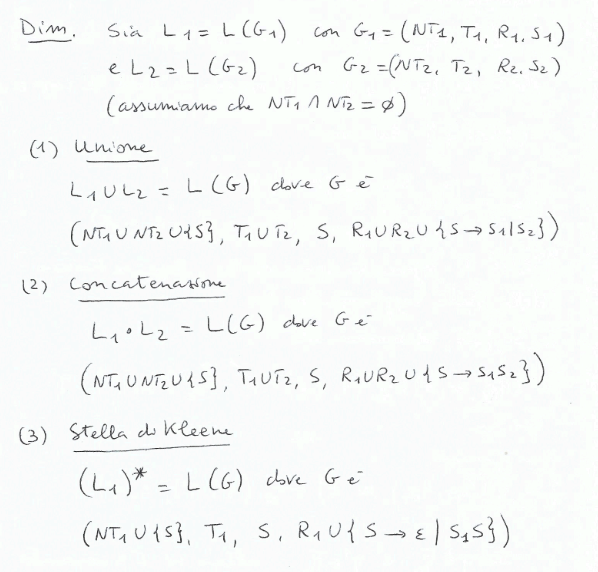 Dim. Sia L1 = L(G1) con G1 = (NT1, T1, R1, S1)
e L2 = L(G2) con G2 = (NT2, T2, R2, S2)
(assumiamo che NT1 ∩ NT2 = ∅)
(1) Unione
L1 ∪ L2 = L(G) dove G è
(NT1 ∪ NT2 ∪ {S}, T1 ∪ T2, S, R1 ∪ R2 ∪ {S → S1 | S2})
(2) Concatenazione
L1 · L2 = L(G) dove G è
(NT1 ∪ NT2 ∪ {S}, T1 ∪ T2, S, R1 ∪ R2 ∪ {S → S1S2})
(3) Stella di Kleene
(L1)* = L(G) dove G è
(NT1 ∪ {S}, T1, S, R1 ∪ {S → ε | S1S})